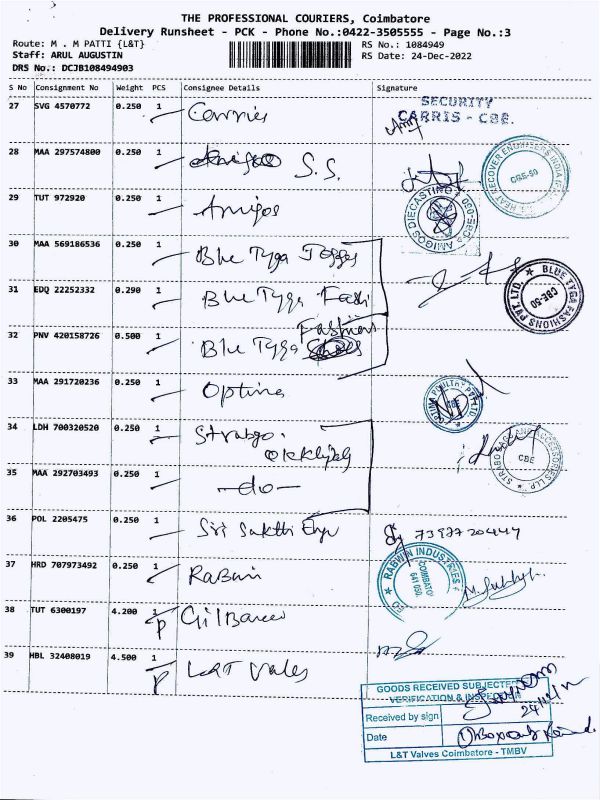 THE PROFESSIONAL COURIERS, Coimbatore
Delivery Runsheet - PCK - Phone No.:0422-3505555 - Page No.:3
Route: M . M PATTI {L&T} RS No.: 1084949
Staff: ARUL AUGUSTIN RS Date: 24-Dec-2022
DRS No.: DCJB108494903
S No Consignment No Weight PCS Consignee Details Signature
27 SVG 4570772 0.250 1 Carries SECURITY
CARRIS - CBE.
28 MAA 297574800 0.250 1 S.S. HEAT RECOVER ENGINEERS INDIA CBE-50
29 TUT 972920 0.250 1 Amigos AMIGOS DIECASTING CBE-050
30 MAA 569186536 0.250 1 Blue Tyga Togges
31 EDQ 22252332 0.290 1 Blue Tyga Fashi BLUE TYGA FASHIONS PVT. LTD. CBE-50
Fashions
32 PNV 420158726 0.500 1 Blue Tyga
33 MAA 291720236 0.250 1 Optima OPTIMA POULTRY PVT LTD CBE
34 LDH 700320520 0.250 1 Strabgo. STRABO ACCESSORIES LLP CBE
35 MAA 292703493 0.250 1 -do-
36 POL 2205475 0.250 1 Siri Sakthi Engr
37 HRD 707973492 0.250 1 Rabwin RABWIN INDUSTRIES COIMBATORE 641 050.
38 TUT 6300197 4.200 1 P Gilbarco
39 HBL 32408019 4.500 1 P L&T Valves
GOODS RECEIVED SUBJECTED
VERIFICATION & INSPECTION
Received by sign
Date
L&T Valves Coimbatore - TMBV